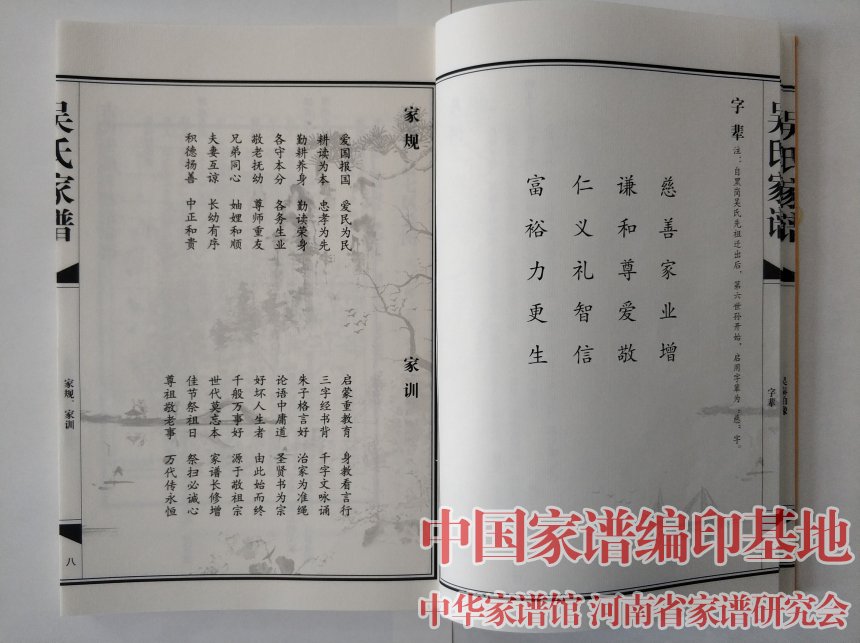 吴氏家谱
字辈
注：自黑岗吴氏先祖迁出后，第六世孙开始，启用字辈为“慈”字。
慈善家业增
谦和尊爱敬
仁义礼智信
富裕力更生
字辈
家规
爱国报国 爱民为民
耕读为本 忠孝为先
勤耕养身 勤读荣身
各守本分 各务生业
敬老抚幼 尊师重友
兄弟同心 妯娌和顺
夫妻互谅 长幼有序
积德扬善 中正和贵
家训
启蒙重教育 身教看言行
三字经书背 千字文咏诵
朱子格言好 治家为准绳
论语中庸道 圣贤书为宗
好坏人生者 由此始而终
千般万事好 源于敬祖宗
世代莫忘本 家谱长修增
佳节祭祖日 祭扫必诚心
尊祖敬老事 万代传永恒
吴氏家谱
家规、家训
八
中国家谱编印基地
中华家谱馆 河南省家谱研究会